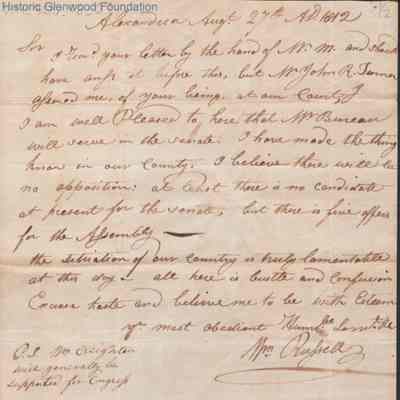 Historic Glenwood Foundation
Alexandria Augt 27th AD. 1812
Sir
I Recd your letter by the hand of Mr. M. and should
have ansd it before this, but Mr John R. Turner
me, of your being at our County
I am well Pleased to here that Mr Duncan
will serve in the senate. I have made the thing
know in our County. I believe there will be
no opposition: at least there is no candidate
at present for the senate, but there is five offers
for the Assembly
the situation of our Country is truly lamentable
at this day — all here is bustle and confusion
Excuse haste and believe me to be with Esteem
yr most obedient Humble Servt
Wm Russell
P.S. Mr Creighton
will generally be
supported for Congress